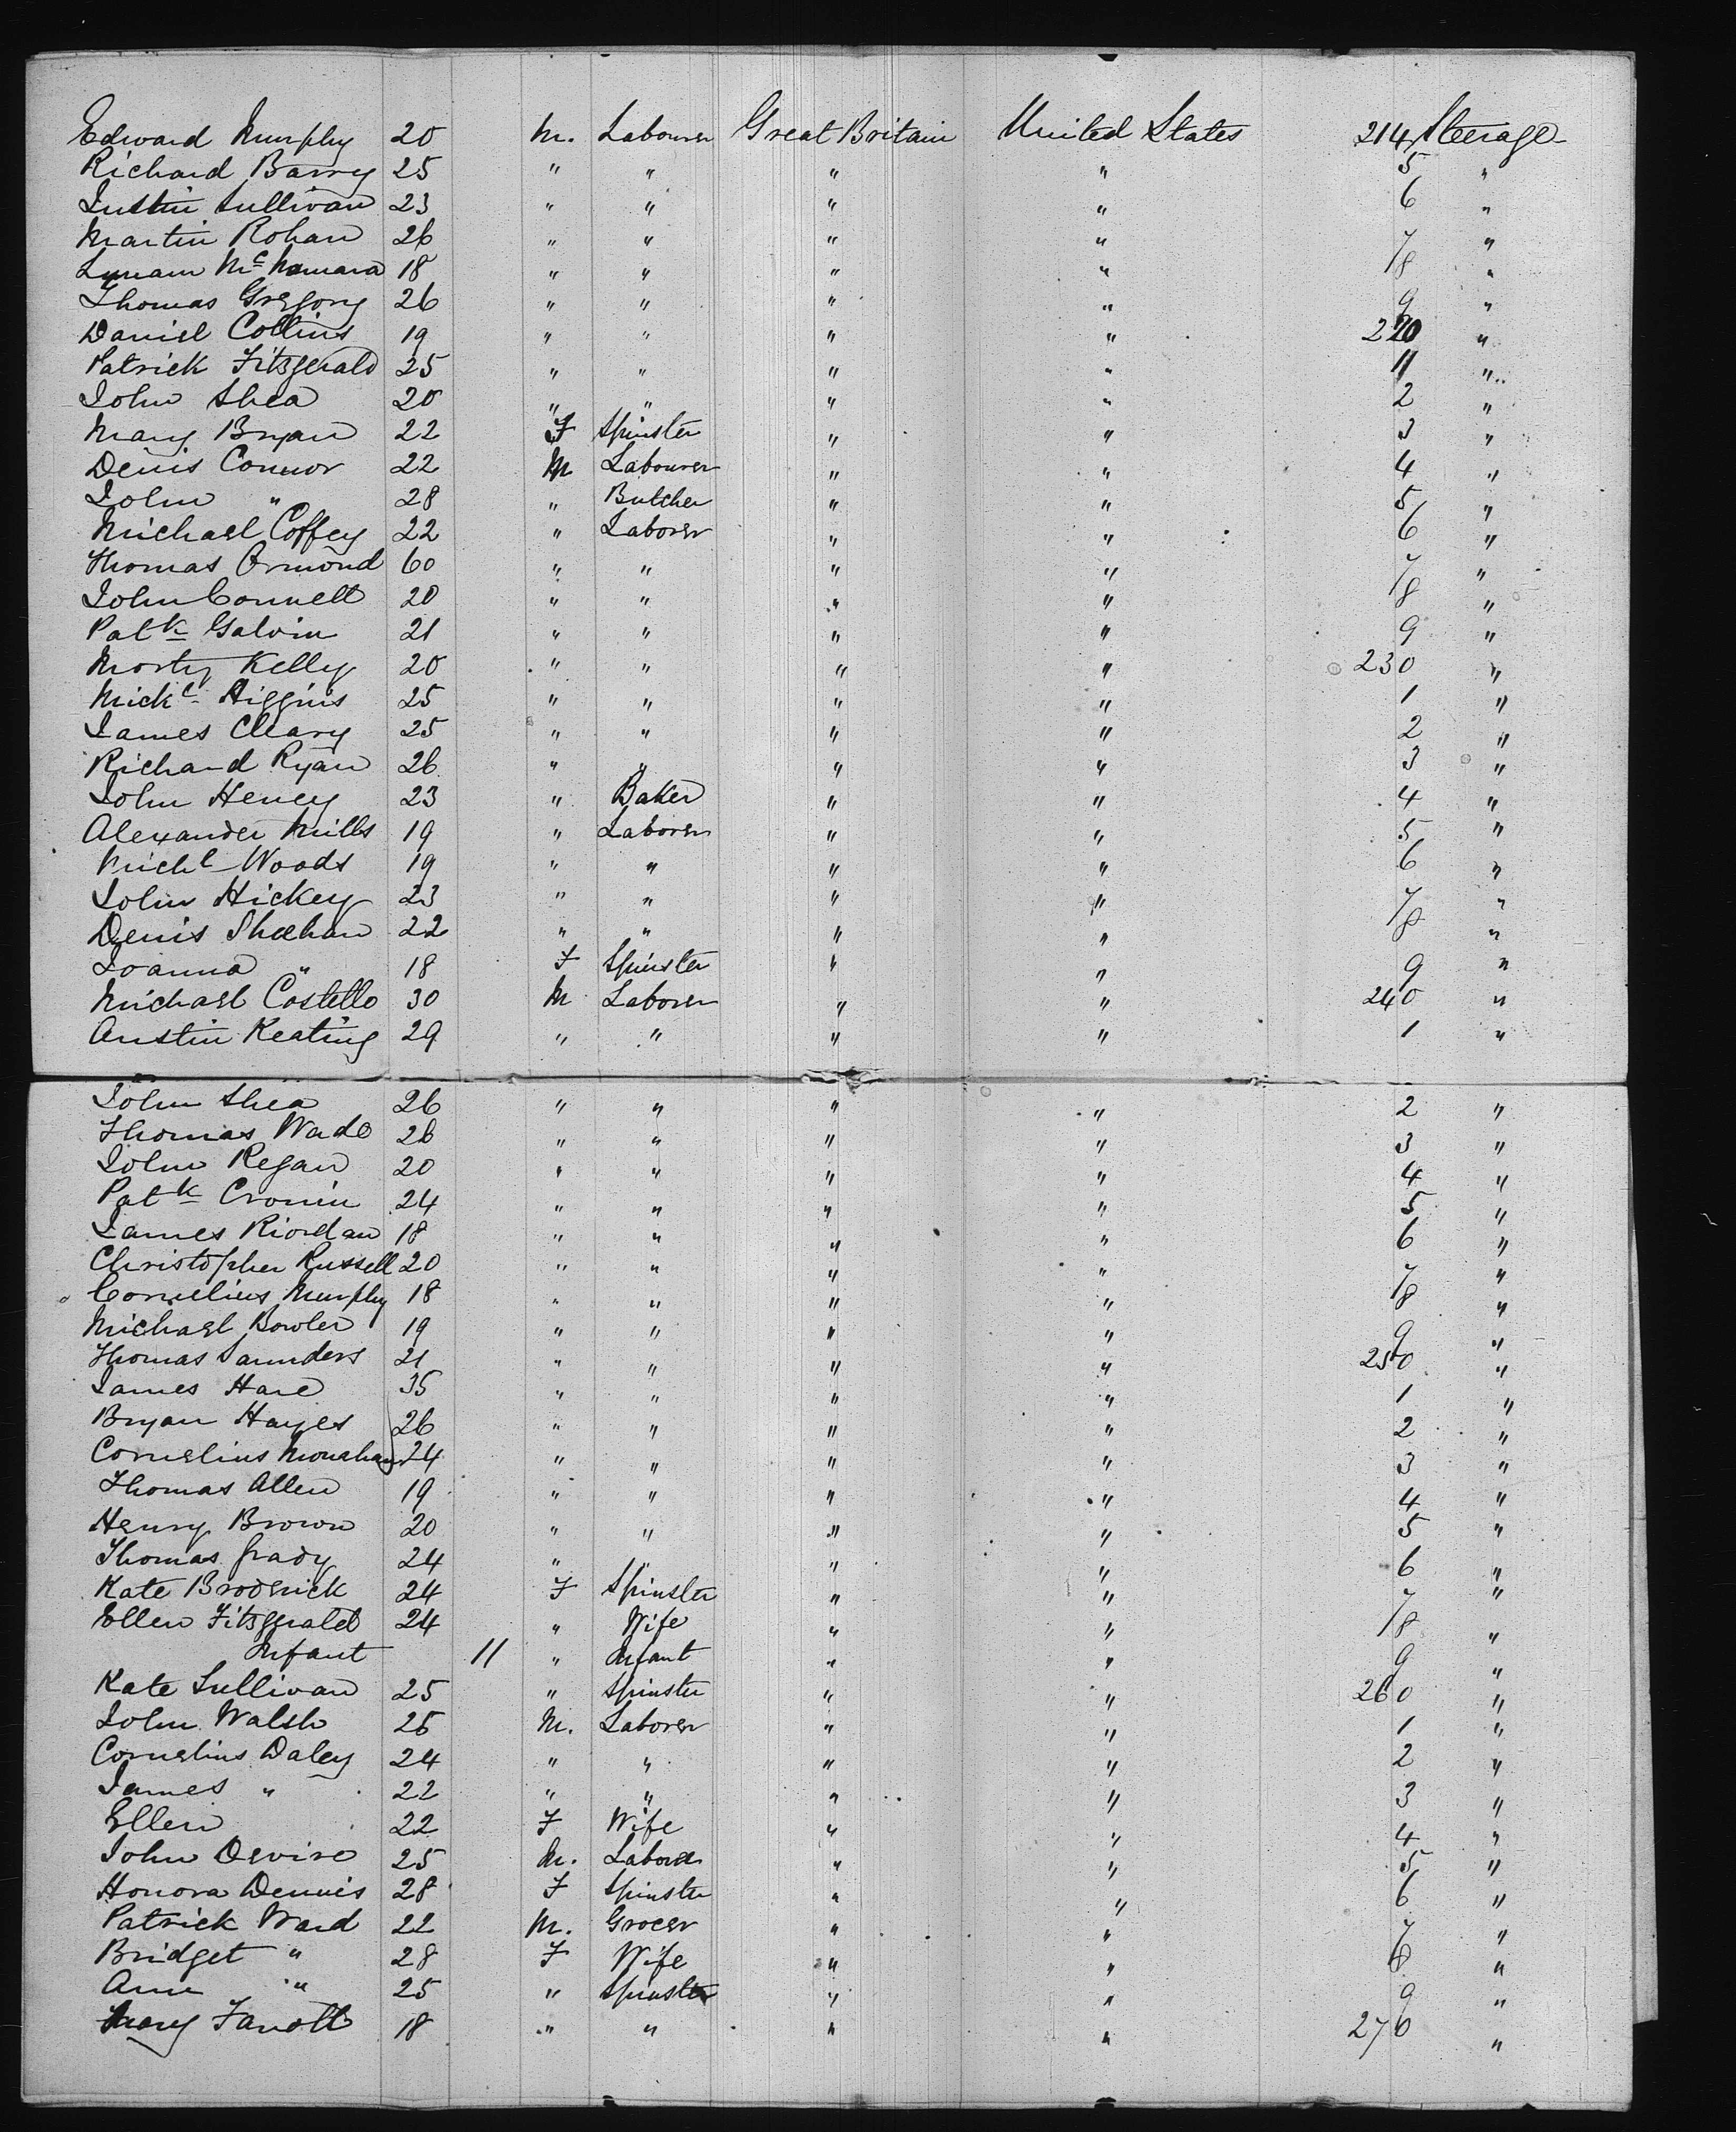 Edward Murphy 20 M. Labourer Great Britain United States 214 Steerage
Richard Barry 25 " " " " 5 "
Sullivan 23 " " " " 6 "
Martin Rohan 26 " " " " 7 "
McNamara 18 " " " " 8 "
Thomas Gregory 26 " " " " 9 "
Daniel Collins 19 " " " " 220 "
Patrick Fitzgerald 25 " " " " 1 "
John Shea 20 " " " " 2 "
Mary Bryan 22 F Spinster " " 3 "
Denis Connor 22 M Labourer " " 4 "
John " 28 " Butcher " " 5 "
Michael Coffey 22 " Laborer " " 6 "
Thomas Ormond 60 " " " " 7 "
John Connell 20 " " " " 8 "
Patk Galvin 21 " " " " 9 "
Morty Kelly 20 " " " " 230 "
Michl Higgins 25 " " " " 1 "
James Cleary 25 " " " " 2 "
Richard Ryan 26 " " " " 3 "
John Heney 23 " Baker " " 4 "
Alexander Mills 19 " Laborer " " 5 "
Michl Woods 19 " " " " 6 "
John Hickey 23 " " " " 7 "
Denis Sheehan 22 " " " " 8 "
Joanna " 18 F Spinster " " 9 "
Michael Costello 30 M Laborer " " 240 "
Austin Keating 29 " " " " 1 "
John Shea 26 " " " " 2 "
Thomas Wade 26 " " " " 3 "
John Regan 20 " " " " 4 "
Patk Cronin 24 " " " " 5 "
James Riordan 18 " " " " 6 "
Christopher Russell 20 " " " " 7 "
Cornelius Murphy 18 " " " " 8 "
Michael Bowler 19 " " " " 9 "
Thomas Saunders 21 " " " " 250 "
James Hare 35 " " " " 1 "
Bryan Hayes 26 " " " " 2 "
Cornelius Monahan 24 " " " " 3 "
Thomas Allen 19 " " " " 4 "
Henry Brown 20 " " " " 5 "
Thomas Grady 24 " " " " 6 "
Kate Broderick 24 F Spinster " " 7 "
Ellen Fitzgerald 24 " Wife " " 8 "
Infant 11 " Infant " " 9 "
Kate Sullivan 25 " Spinster " " 260 "
John Walsh 25 M. Laborer " " 1 "
Cornelius Daley 24 " " " " 2 "
James " 22 " " " " 3 "
Ellen 22 F Wife " " 4 "
John Devire 25 M. Laborer " " 5 "
Honora Dennis 28 F Spinster " " 6 "
Patrick Ward 22 M. Grocer " " 7 "
Bridget " 28 F Wife " " 8 "
Ann " 25 " Spinster " " 9 "
Mary 18 " " " " 270 "